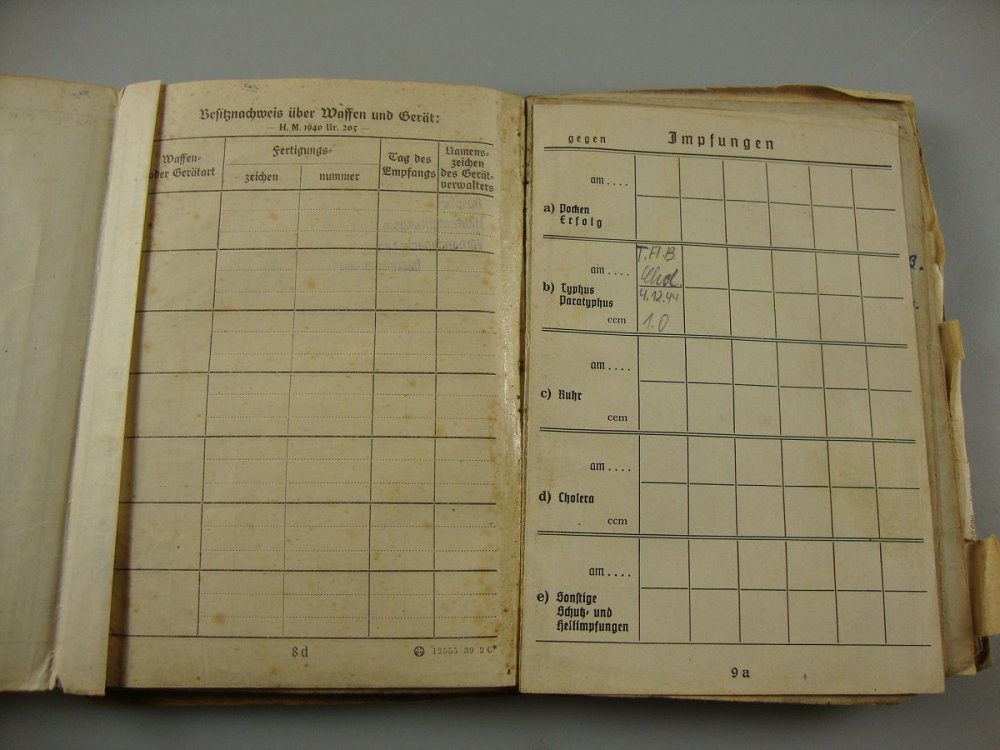 Besitznachweis über Waffen und Gerät:
— H. M. 1940 Nr. 205 —
Waffen-
oder Gerätart
Fertigungs-
zeichen
nummer
Tag des
Empfangs
Namens-
zeichen
des Gerät-
verwalters
8d
12555 39 2C
gegen
Impfungen
am . . . .
a) Pocken
Erfolg
T.A.B.
am . . . .
Chol.
b) Typhus
Paratyphus
4.12.44
ccm
1.0
am . . . .
c) Ruhr
ccm
am . . . .
d) Cholera
ccm
am . . . .
e) Sonstige
Schutz- und
Heilimpfungen
9a